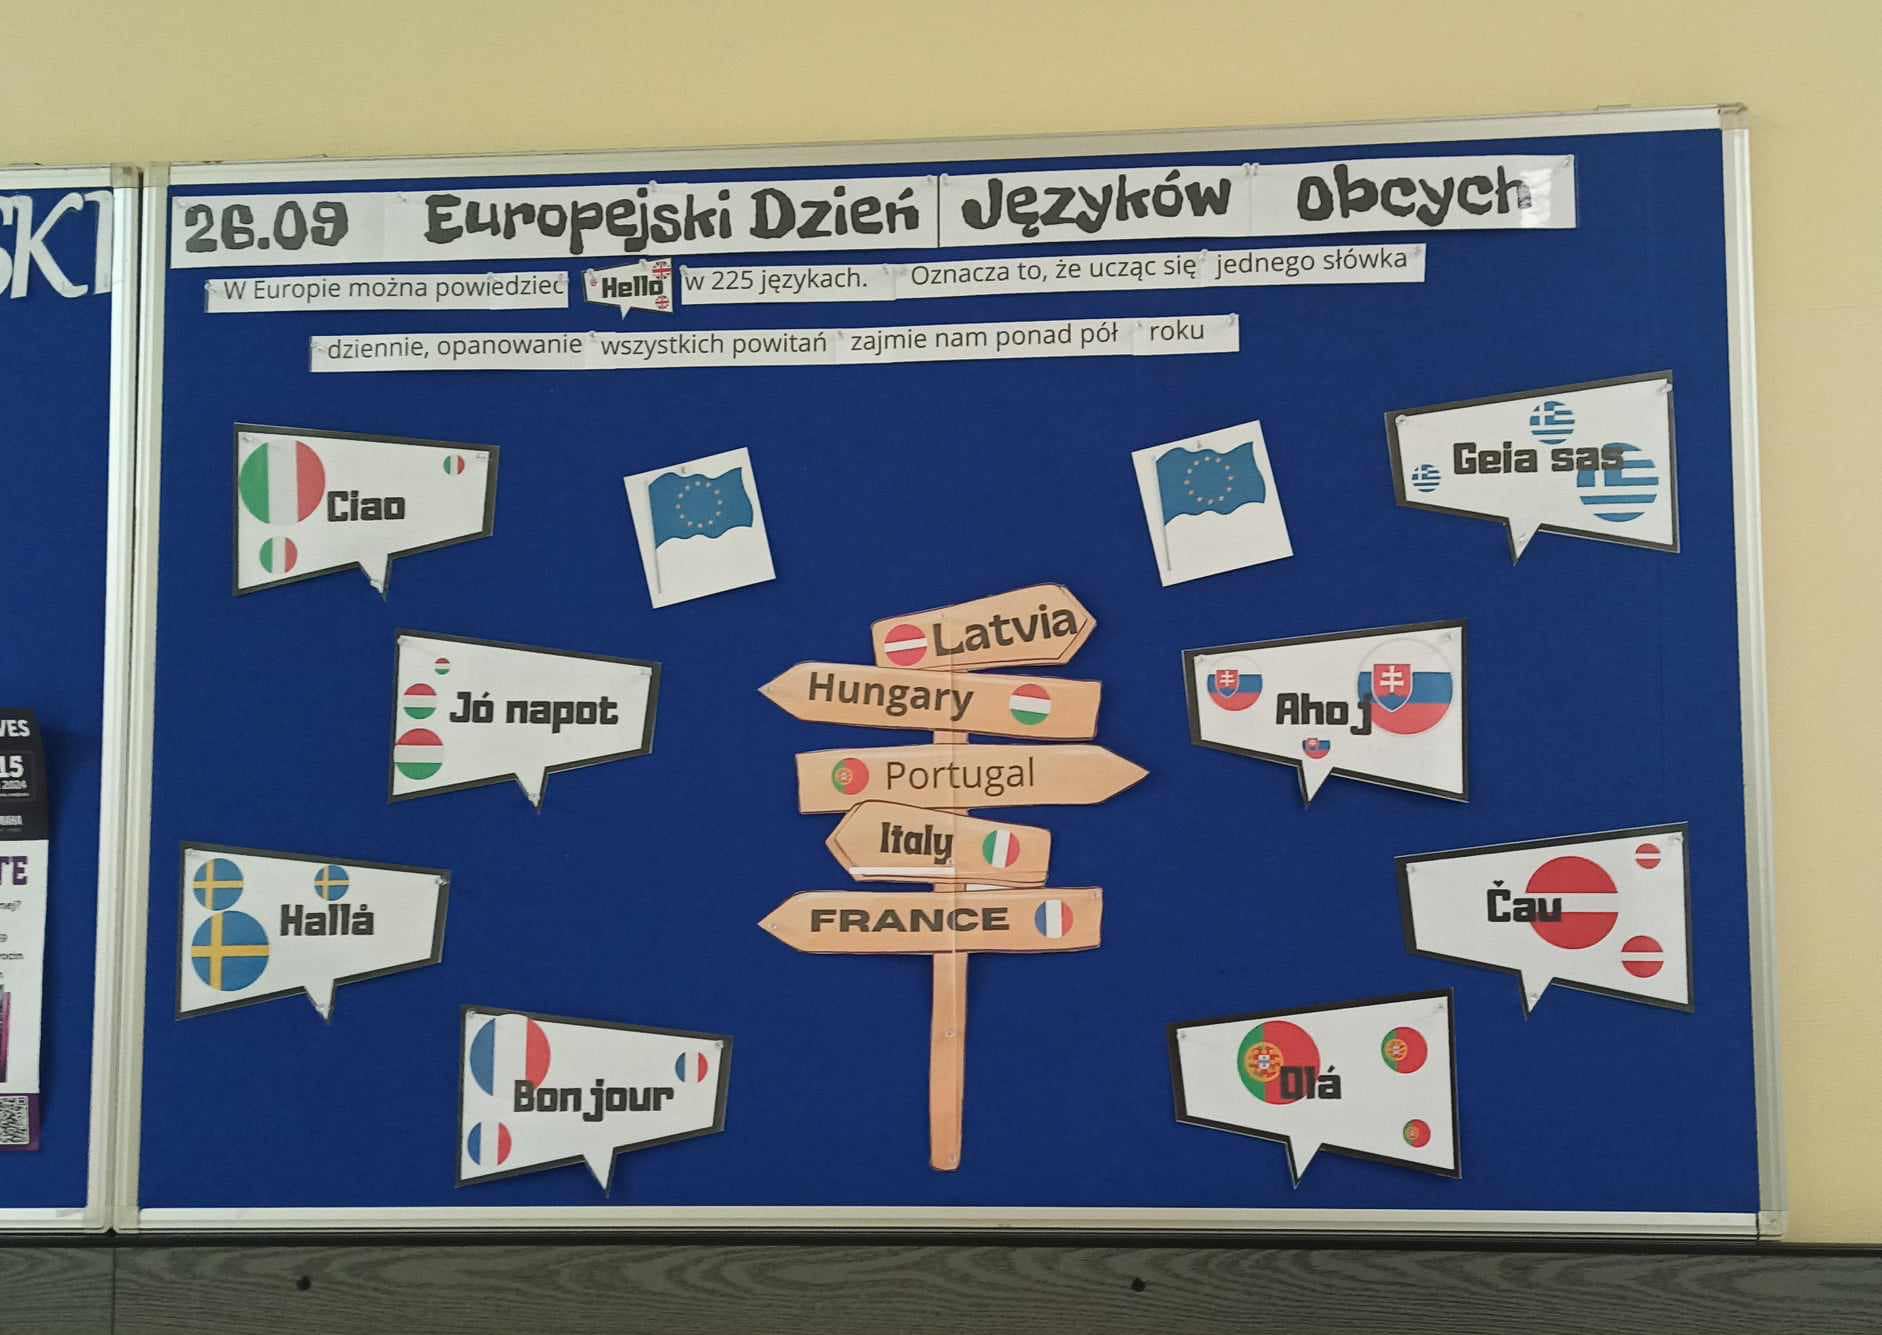 SKI
26.09 Europejski Dzień Języków obcych
W Europie można powiedzieć Hello w 225 językach. Oznacza to, że ucząc się jednego słówka
dziennie, opanowanie wszystkich powitań zajmie nam ponad pół roku
Ciao
Geia sas
Latvia
Hungary
Jó napot
Ahoj
Portugal
Italy
Hallå
FRANCE
Čau
Bonjour
Olá
VES
15
2024
TE